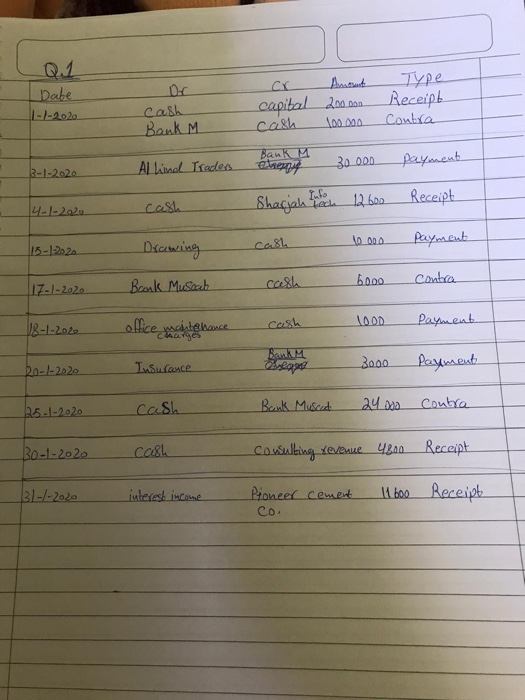 Q.1
Date Dr Cr Amount Type
1-1-2020 Cash capital 200 000 Receipt
Bank M Cash 100 000 Contra
3-1-2020 Al Limal Traders Bank M 30 000 Payment
4-1-2020 Cash Sharjah Info tech 12 600 Receipt
15-1-2020 Drawing Cash 10 000 Payment
17-1-2020 Bank Muscat cash 6000 Contra
18-1-2020 office maintenance charges cash 1000 Payment
20-1-2020 Insurance Bank M 3000 Payment
25-1-2020 Cash Bank Muscat 24 000 Contra
30-1-2020 Cash Consulting revenue 4800 Receipt
31-1-2020 interest income Pioneer cement 11 600 Receipt
Co.